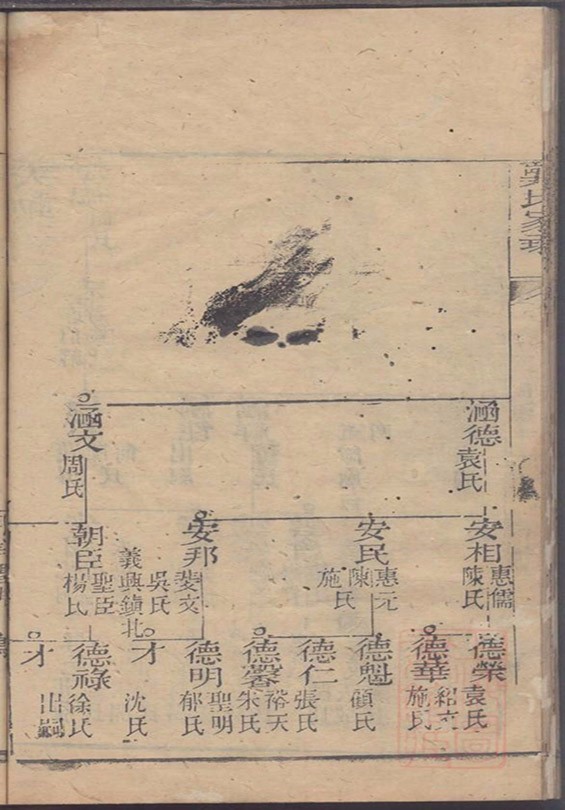 龔氏家乘
涵德
袁氏
涵文
周氏
安相
惠儒
陳氏
安民
惠元
陳
施氏
安邦
斐文
吳氏
義興鎮北
朝臣
聖臣
楊氏
德榮
袁氏
德華
紹文
施氏
德魁
顧氏
德仁
張氏
德馨
裕天
朱氏
德明
聖明
郁氏
才
沈氏
德祿
徐氏
才
出嗣